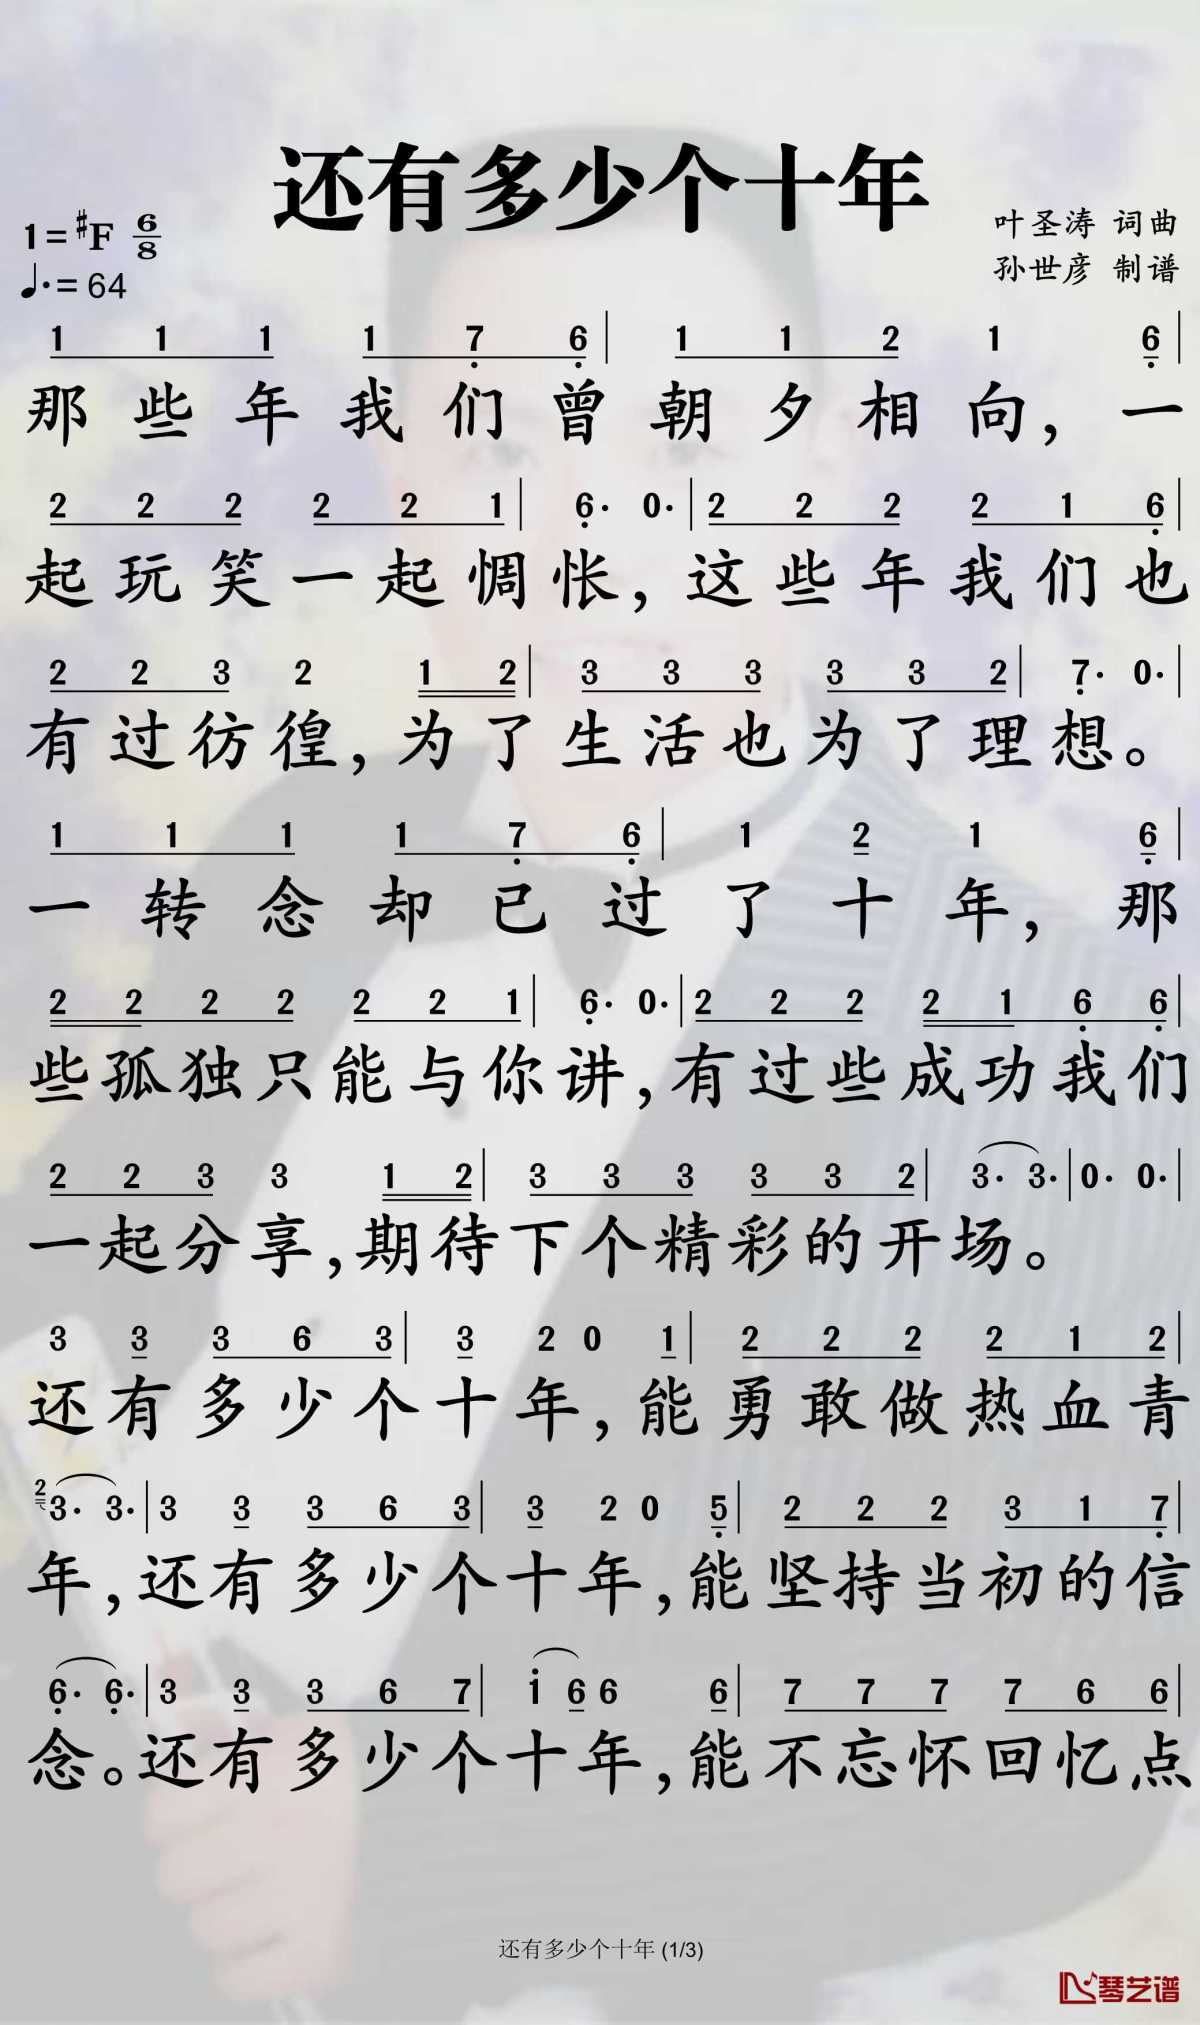 还有多少个十年
1=♯F 6/8
叶圣涛 词曲
♩.=64
孙世彦 制谱
1 1 1 1 7 6 | 1 1 2 1 6 |
那些年我们曾朝夕相向，一
2 2 2 2 2 1 | 6· 0· | 2 2 2 2 1 6 |
起玩笑一起惆怅，这些年我们也
2 2 3 2 1 2 | 3 3 3 3 3 2 | 7· 0· |
有过彷徨，为了生活也为了理想。
1 1 1 1 7 6 | 1 2 1 6 |
一转念却已过了十年，那
2 2 2 2 2 2 1 | 6· 0· | 2 2 2 2 1 6 6 |
些孤独只能与你讲，有过些成功我们
2 2 3 3 1 2 | 3 3 3 3 3 2 | 3· 3· | 0· 0· |
一起分享，期待下个精彩的开场。
3 3 3 6 3 | 3 2 0 1 | 2 2 2 2 1 2 |
还有多少个十年，能勇敢做热血青
2 3· 3· | 3 3 3 6 3 | 3 2 0 5 | 2 2 2 3 1 7 |
年，还有多少个十年，能坚持当初的信
6· 6· | 3 3 3 6 7 | i 6 6 6 | 7 7 7 7 6 6 |
念。还有多少个十年，能不忘怀回忆点
还有多少个十年 (1/3)
琴艺谱